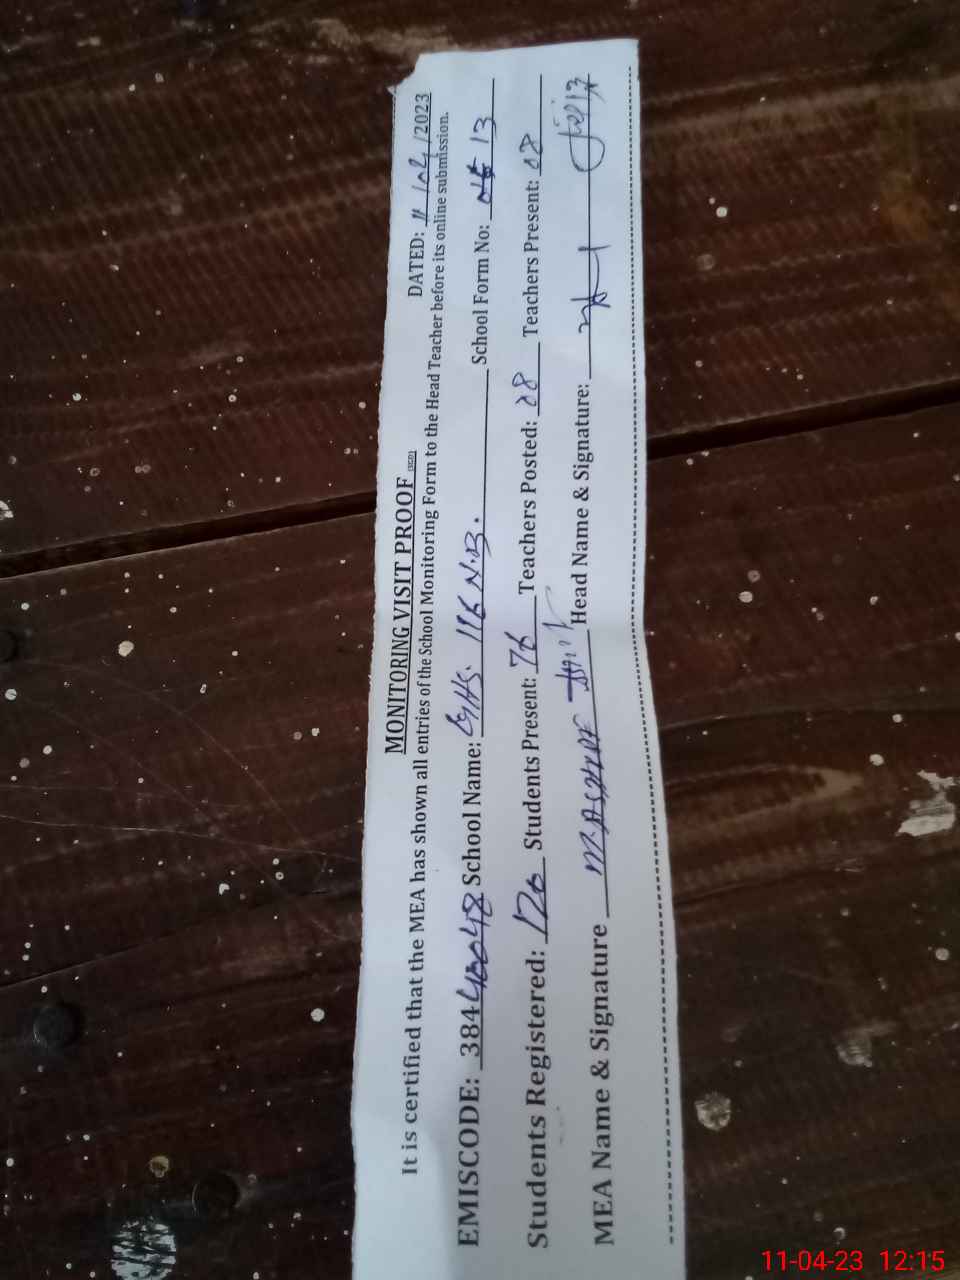 MONITORING VISIT PROOF (SGD) DATED: 11/04/2023
It is certified that the MEA has shown all entries of the School Monitoring Form to the Head Teacher before its online submission.
EMISCODE: 38440048 School Name: GHS. 116 N.B. School Form No: 13
Students Registered: 126 Students Present: 76 Teachers Posted: 08 Teachers Present: 08
MEA Name & Signature Head Name & Signature:
11-04-23 12:15